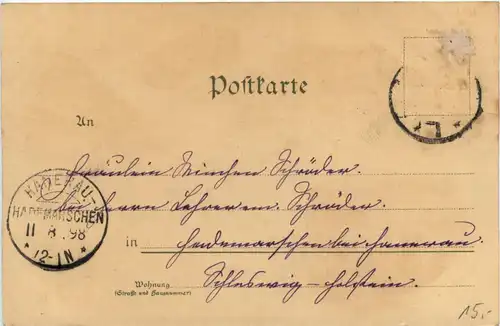 Postkarte
An
Fräulein Minchen Schröder.
bei Herrn Lehrer em. Schröder
in Hademarschen bei Hanerau.
Wohnung
(Straße und Hausnummer)
Schleswig-Holstein.
HANERAU-
HADEMARSCHEN
11 8 .98
* 12-1N *
15,-